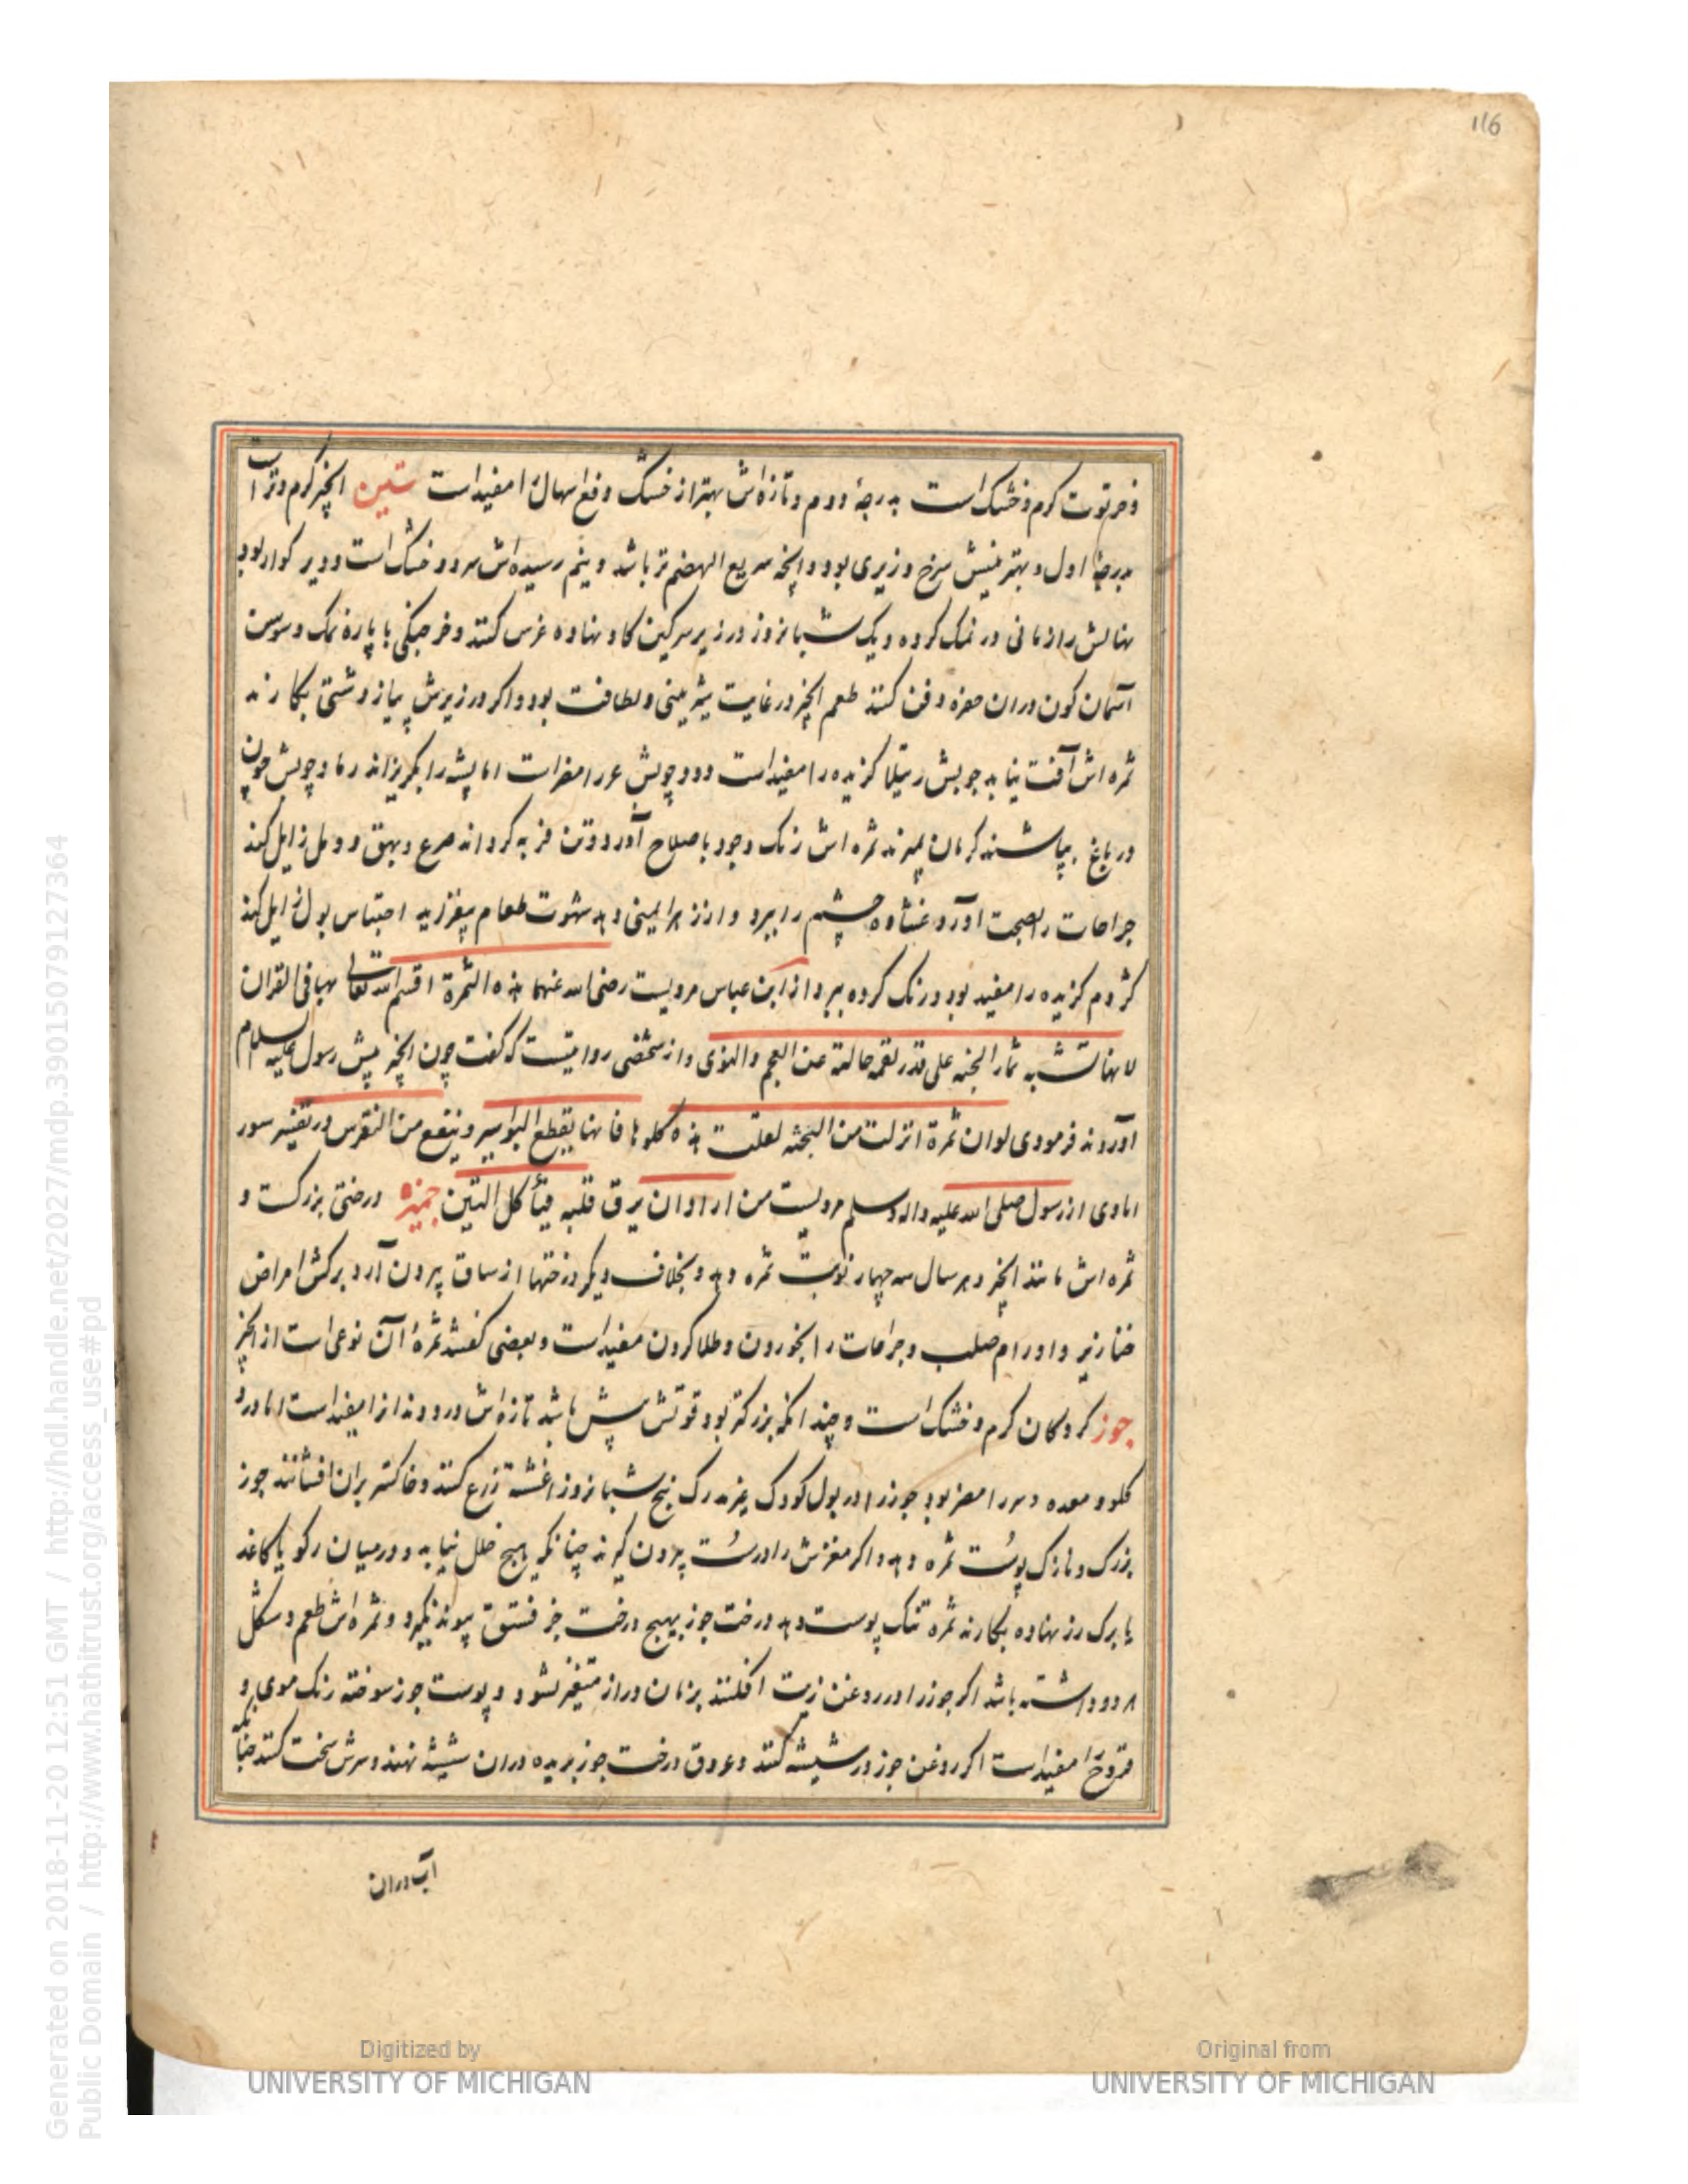 116
و فرتوت گرم و خشک است بدرجهٔ دوم و تازه‌اش بهتر از خشک دفع اسهال را مفید است تین انجیر گرم و تر است
بدرجهٔ اول و بهترینش سرخ وزیری بود و انچه سریع الهضم‌تر باشد و نیم رسیده‌اش سرد و خشک است و دیر کوار بود
نهالش را زمانی در نمک کرده و یک شبانروز در زیر سرکین کاو نهاده غرس کنند و خرچنگی با پارهٔ نمک و سوسن
آسمان کون دران حفره دفن کنند طعم انجیر در غایت شیرینی و لطافت بود و اکر در زیرش پیاز دشتی بکارند
ثمره اش آفت نیابد چوبش رتیلا کزیده را مفید است و دود چوبش اما پشه را بکریزاند رماد چوبش چون
در باغ بپاشند کرمان بمیرند ثمره اش رنک وجود باصلاح آورد و تن فربه کرداند صرع و بهق و دمل زایل کند
جراحات را بصحت آورد و غشاوه چشم را ببرد و از زهر ایمنی دهد شهوت طعام بیفزاید احتباس بول زایل کند
کژدم کزیده را مفید بود و رنک کرده ببرد از ابن عباس مرویست رضی الله عنهما هذه الثمرة اقسم الله تعالی بها فی القرآن
لانها تشبه ثمار الجنه علی قدر لقمه خالیة عن العجم والنوی و از شخصی روایتست که کفت چون انجیر پیش رسول علیه السلام
آوردند فرمودی لو ان ثمرة انزلت من الجنه لقلت هذه کلوها فانها یقطع البواسیر و ینفع من النقرس در تفسیر سور
ابادی از رسول صلی الله علیه واله وسلم مرویست من اراد ان یرق قلبه فیأکل التین جمیزه درختی بزرکست و
ثمره اش مانند انجیر و هر سال سه چهار نوبت ثمره دهد و بخلاف دیکر درختها از ساق بیرون آرد برکش امراض
خنازیر و اورام صلب و جراحات را بخوردن و طلا کردن مفید است و بعضی کفتند ثمرهٔ آن نوعی است از انجیر
جوز کردکان کرم و خشک است و چندانکه بزرکتر بود قوتش بیش باشد تازه‌اش درد دندانرا مفید است اما درد
کلو و معده و سر را مضر بود جوز را در بول کودک پنج شبانروز اغشته زرع کنند و خاکستر بران افشانند جوز
بزرک و نازک پوست ثمره دهد و اکر مغزش را درست بیرون کیرند چنانکه هیچ خلل نیابد و در میان رکو یا کاغد
یا برک رز نهاده بکارند ثمره تنک پوست دهد درخت جوز بهیچ درخت جز فستق پیوند نکیرد و ثمره اش طعم و شکل
هر دو داشته باشد اکر جوز را در روغن زیت افکنند بزمان دراز متغیر نشود و پوست جوز سوخته رنک موی و
قروح را مفید است اکر روغن جوز در شیشه کنند و عروق درخت جوز بریده دران شیشه نهند و سرش سخت کنند چنانکه
آب دران
Generated on 2018-11-20 12:51 GMT / http://hdl.handle.net/2027/mdp.39015079127364
Public Domain / http://www.hathitrust.org/access_use#pd
Digitized by
UNIVERSITY OF MICHIGAN
Original from
UNIVERSITY OF MICHIGAN